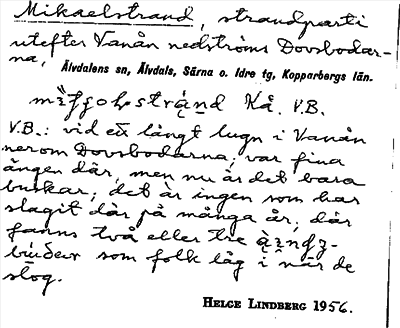 Mikaelstrand, strandparti
utefter Vanån nedströms Dovsbodar-
na,
Älvdalens sn, Älvdals, Särna o. Idre tg, Kopparbergs län.
Kå. V.B.
V.B.: vid ett långt lugn i Vanån
nerom Dovsbodarna; var fina
ängen där, men nu är det bara
buskar; det är ingen som har
slagit där på många år; där
fanns två eller tre
som folk låg i när de
slog.
HELGE LINDBERG 1956.